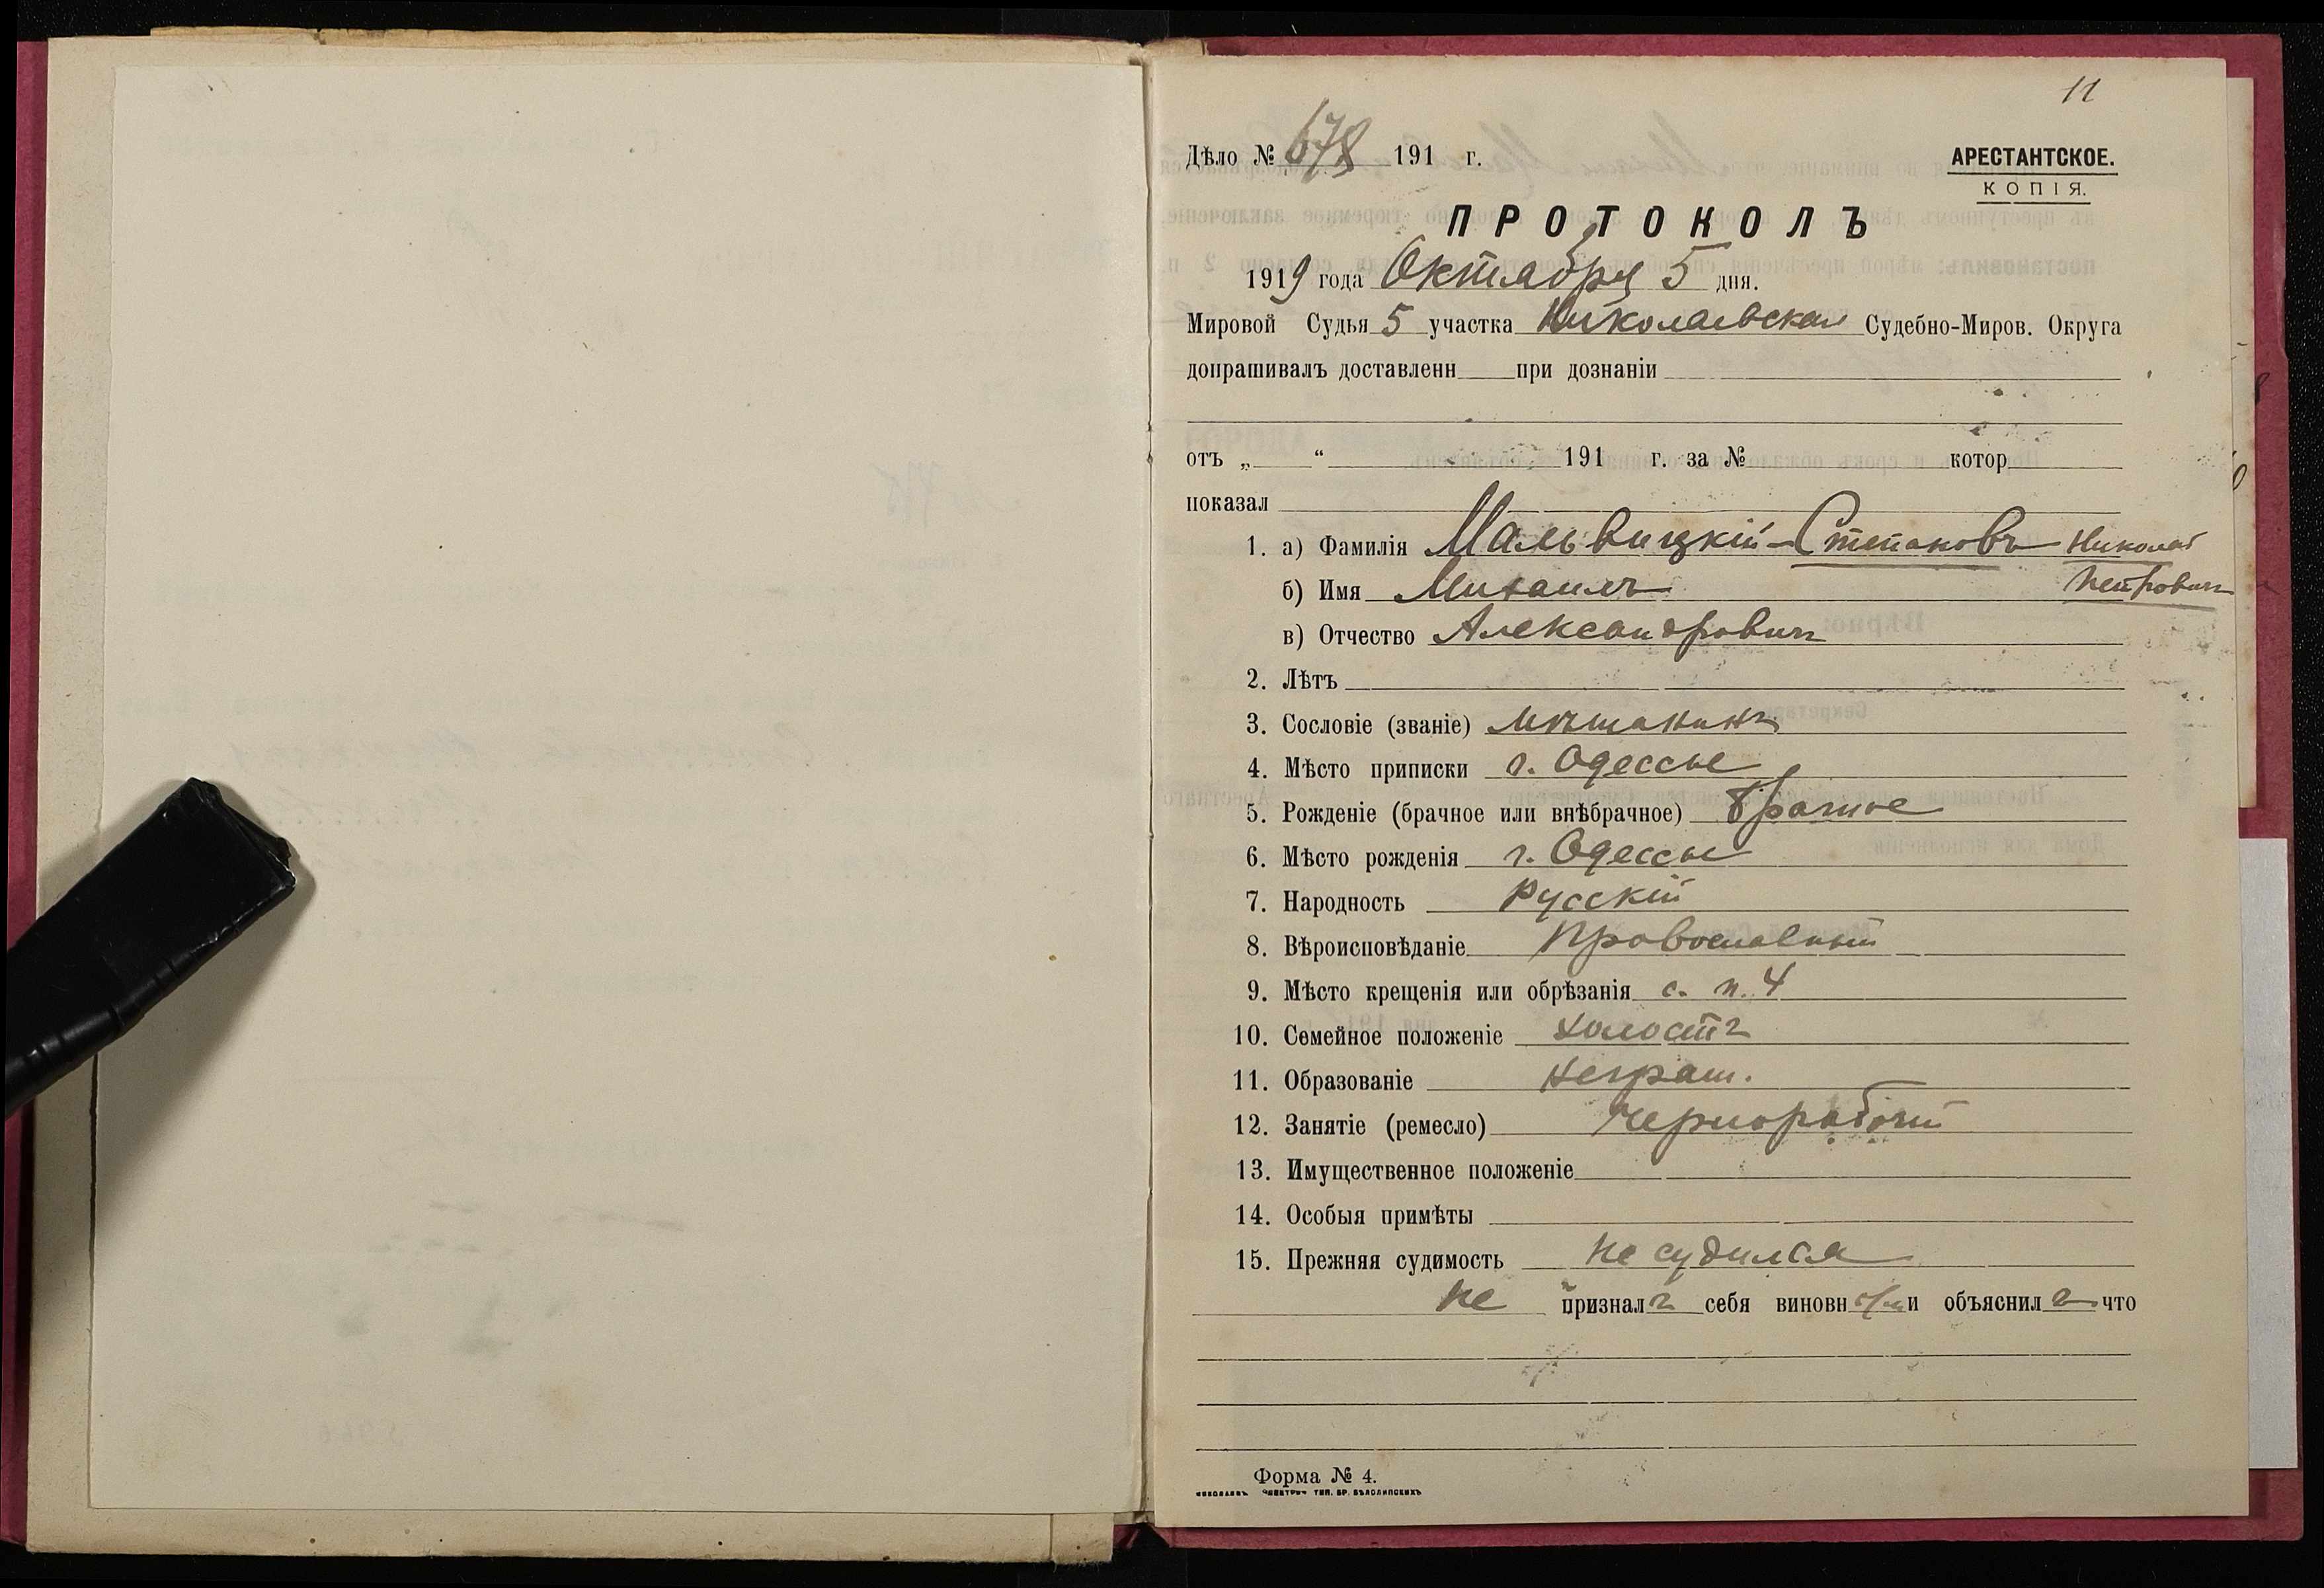 11
Дѣло № 678 191 г.
АРЕСТАНТСКОЕ.
КОПІЯ.
ПРОТОКОЛЪ
1919 года Октября 5 дня.
Мировой Судья 5 участка Николаевскаго Судебно-Миров. Округа
допрашивалъ доставленн при дознаніи
отъ „ “ 191 г. за № котор
показал
1. а) Фамилія Мальвицкій-Степановъ Николай
б) Имя Михаилъ Петровичъ
в) Отчество Александровичъ
2. Лѣтъ
3. Сословіе (званіе) мѣщанинъ
4. Мѣсто приписки г. Одессы
5. Рожденіе (брачное или внѣбрачное) брачное
6. Мѣсто рожденія г. Одессы
7. Народность Русскій
8. Вѣроисповѣданіе Православный
9. Мѣсто крещенія или обрѣзанія с. п. 4
10. Семейное положеніе холостъ
11. Образованіе Неграм.
12. Занятіе (ремесло) Чернорабочій
13. Имущественное положеніе
14. Особыя примѣты
15. Прежняя судимость Не судился
Не призналъ себя виновнымъ и объяснилъ что
Форма № 4.